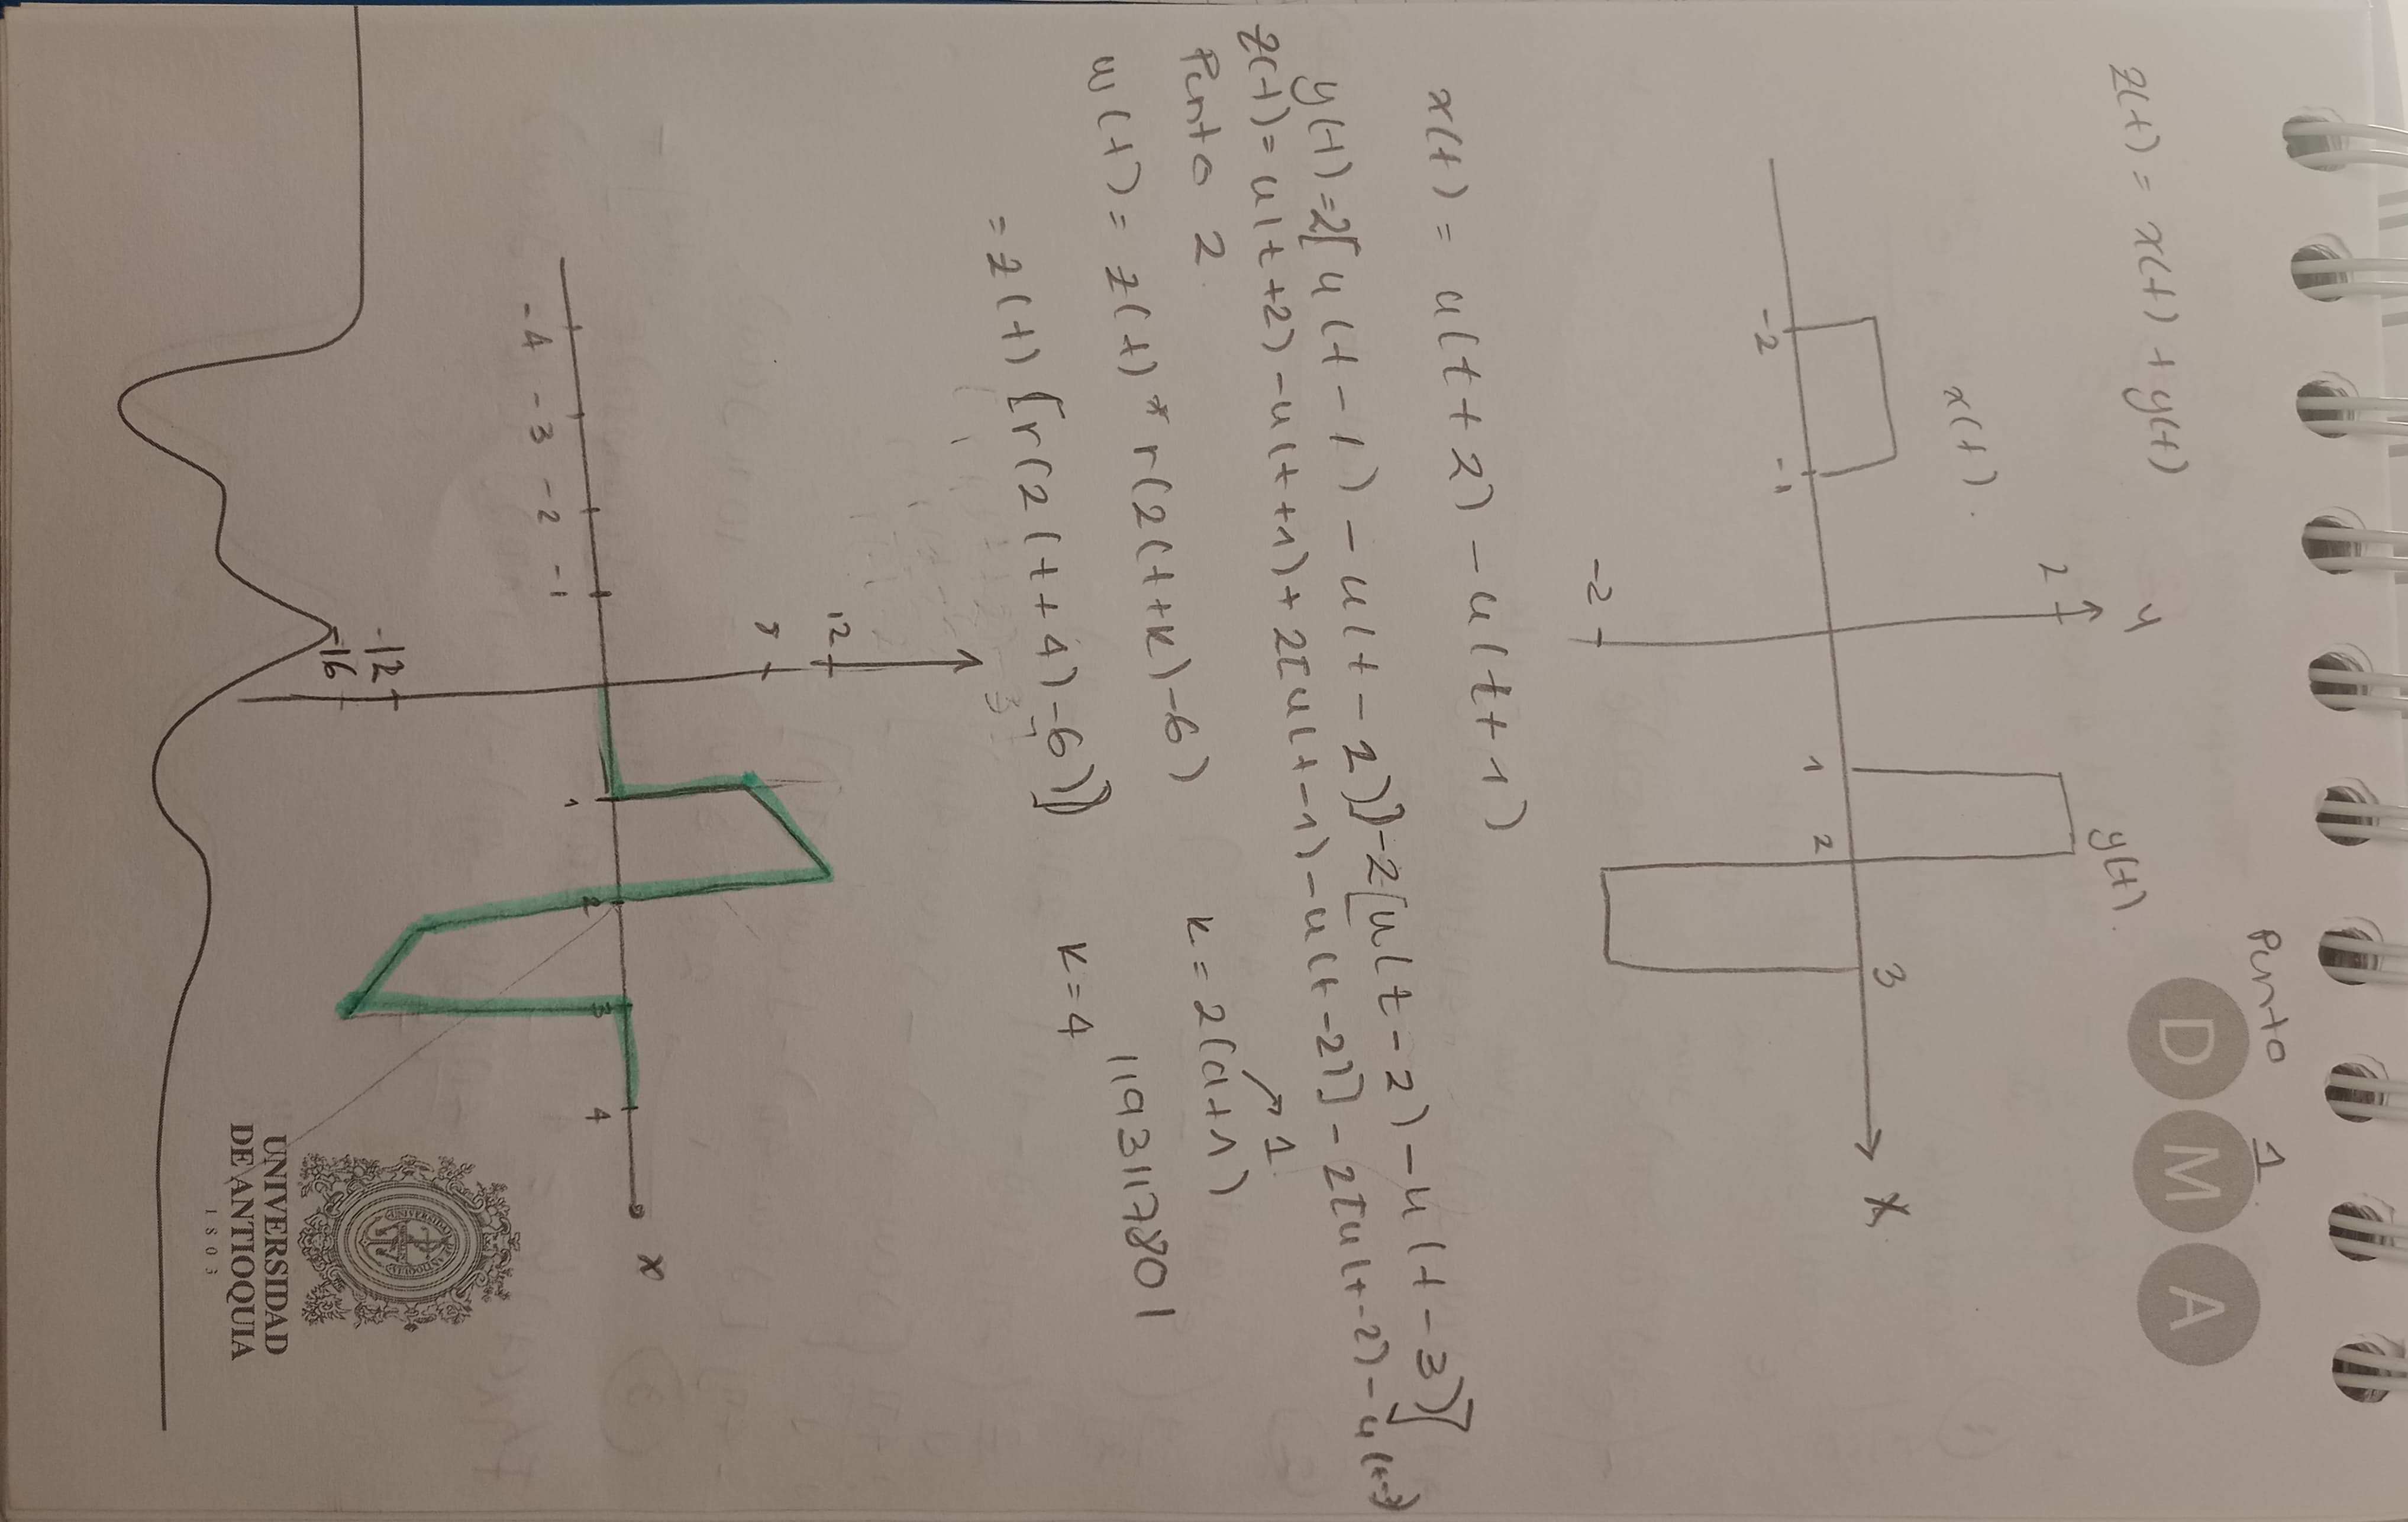 Punto 1.
D M A
z(t) = x(t) + y(t)
y
y(t).
2
x(t).
3
X
-2 -1 1 2
-2
x(t) = u(t+2) - u(t+1)
y(t)=2[u(t-1) - u(t-2)] -2[u(t-2) - u(t-3)]
z(t)= u(t+2) -u(t+1)+ 2[u(t-1)-u(t-2)] - 2[u(t-2) - u(t-3)
Punto 2
↗ 1
k = 2(a+1)
w(t) = z(t) * r(2(t+k)-6)
1193117801
k=4
= z(t) [r(2(t+4)-6)]
12
8
x
-4 -3 -2 -1 1 2 3 4
-12
-16
UNIVERSIDAD
DE ANTIOQUIA
1803